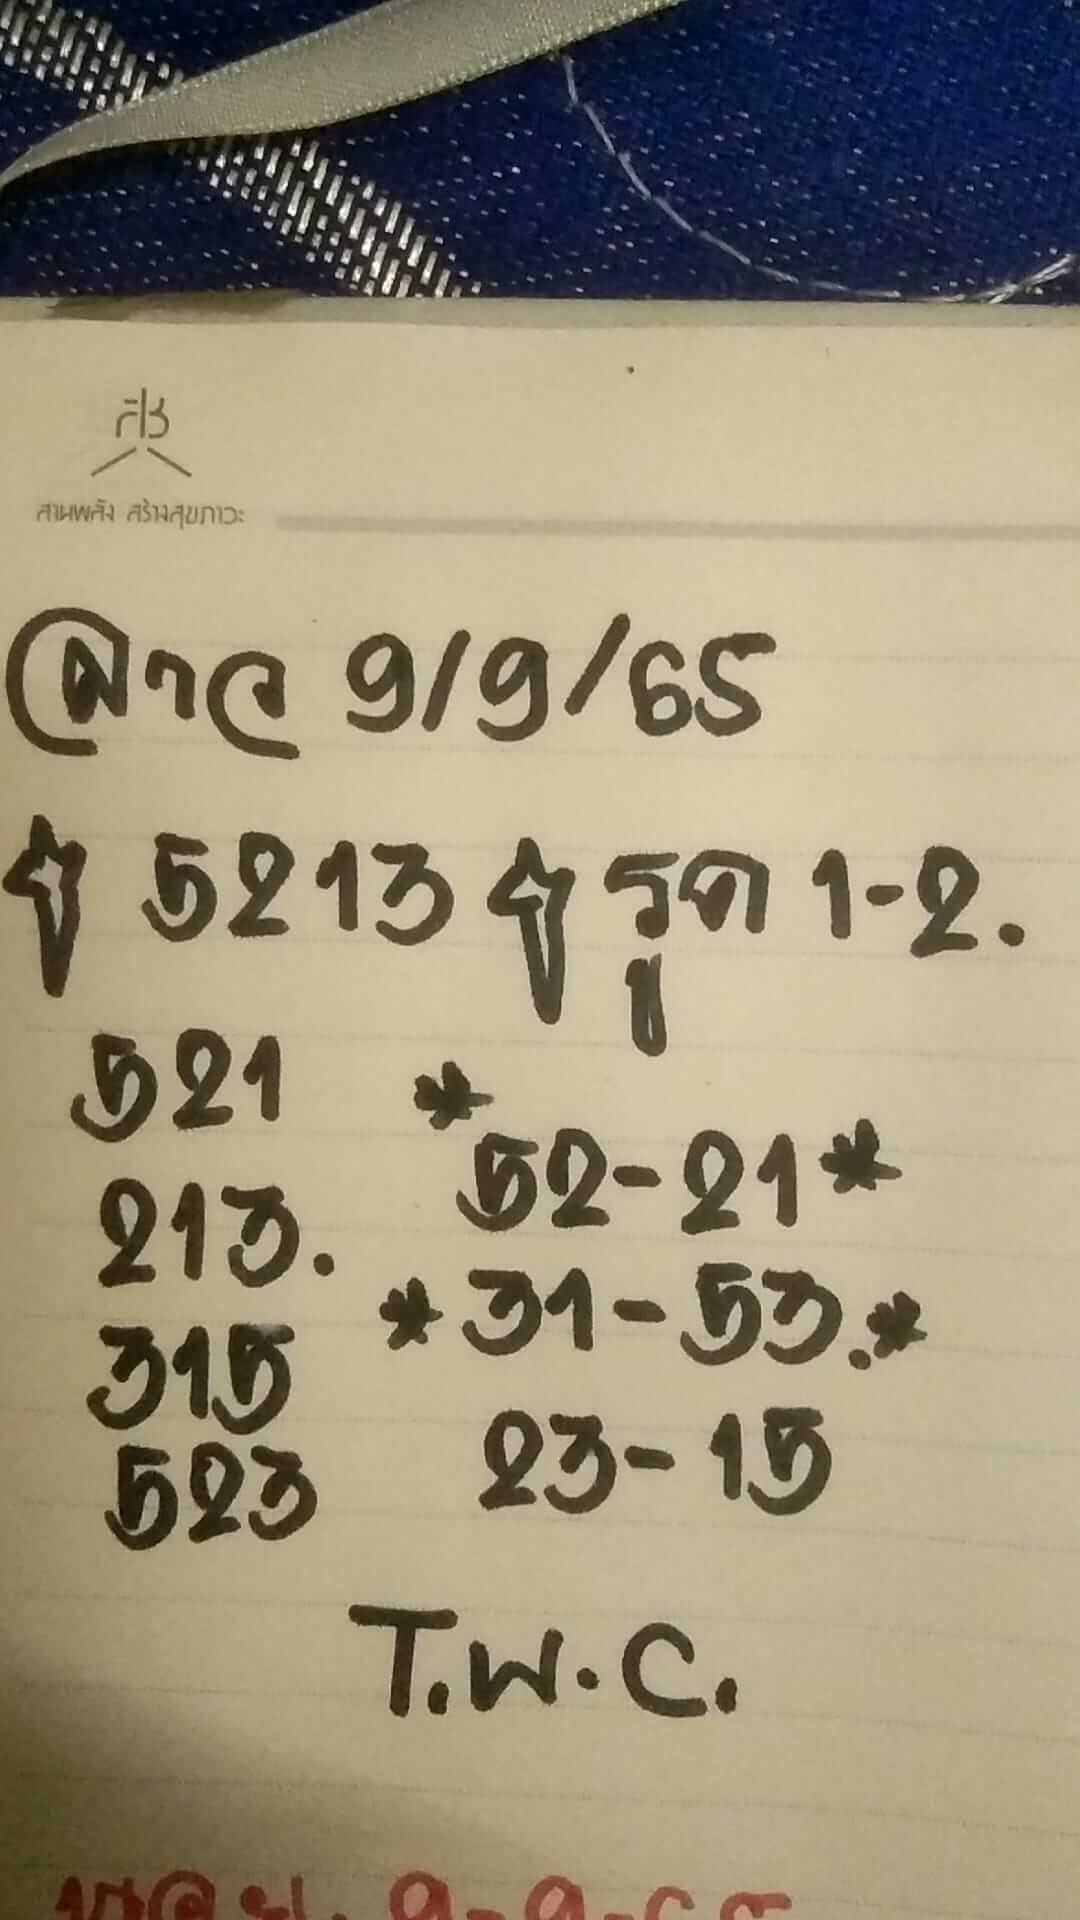 สช
สานพลัง สร้างสุขภาวะ
ลาว 9/9/65
5213 รูด 1-2.
521
52-21
213.
31-53.
315
23-15
523
T.W.C.
9-9-65